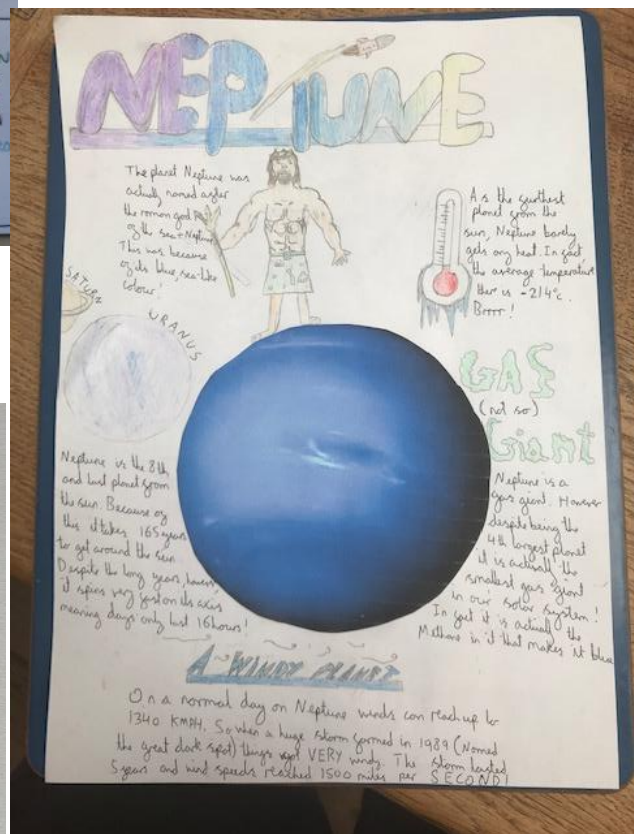 NEPTUNE
The planet Neptune was
actually named after
the roman god
of the sea Neptune
This was because
of its blue, sea-like
colour!
As the furthest
planet from the
sun, Neptune barely
gets any heat. In fact
the average temperature
ther is -214°c.
Brrrr!
SATURN
URANUS
GAS
(not so)
Giant
Neptune is the 8th
and last planet from
the sun. Because of
this it takes 165 years
to get around the sun
Despite the long years, however,
it spins very fast on its axis
meaning days only last 16 hours!
Neptune is a
gas giant. However
despite being the
4th largest planet
it is actually the
smallest gas giant
in our solar system!
In fact it is actually the
Methane in it that makes it blue
A WINDY PLANET
On a normal day on Neptune winds can reach up to
1340 KMPH. So when a huge storm formed in 1989 (Named
the great dark spot) things got VERY windy. The storm lasted
5 years and wind speeds reached 1500 miles per SECOND!